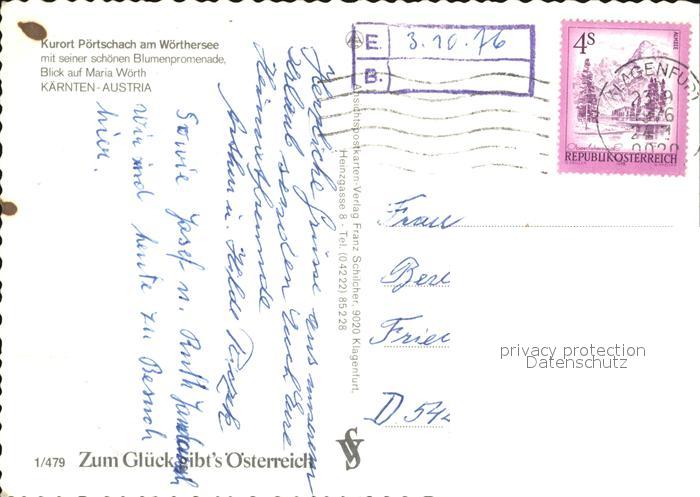 Kurort Pörtschach am Wörthersee
mit seiner schönen Blumenpromenade,
Blick auf Maria Wörth
KÄRNTEN - AUSTRIA
Herzliche Grüsse aus unserem
Urlaub senden Euch Eure
Heimatfreunde
Arthur u. Hilde
Sowie Josef u. Ruth
wir sind heute zu Besuch
hier.
Ansichtspostkarten-Verlag Franz Schilcher, 9020 Klagenfurt,
Heinzgasse 8 - Tel. (04222) 85228
E. 3.10.76
B.
4S
ALMSEE
REPUBLIK ÖSTERREICH
KLAGENFURT
Frau
D 54
privacy protection
Datenschutz
1/479 Zum Glück gibt's Österreich